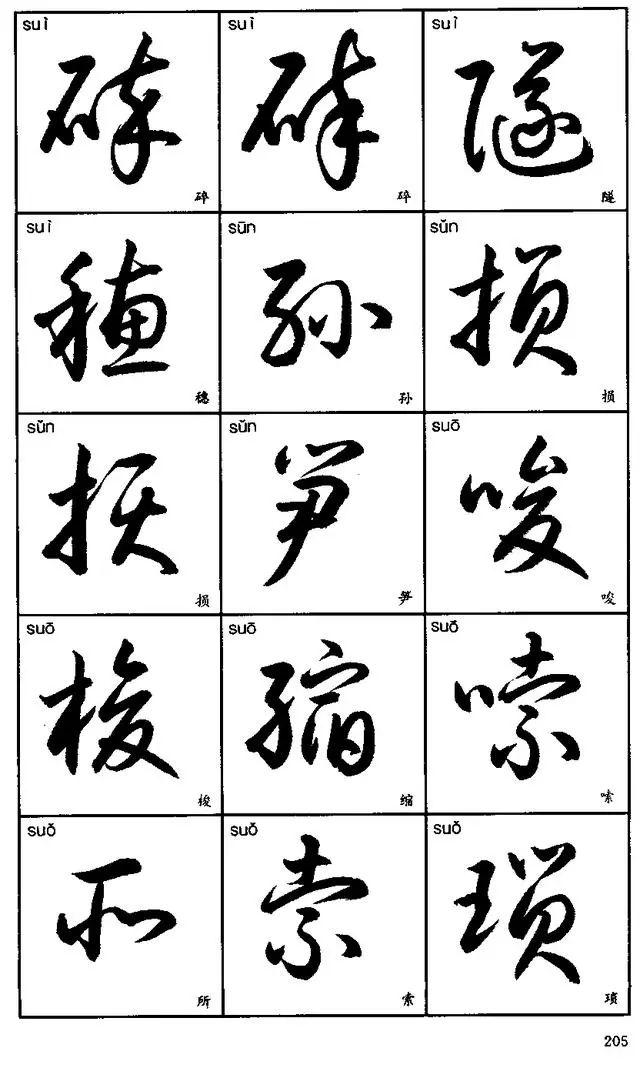 suì suì suì
碎 碎 隧
碎 碎 隧
suì sūn sǔn
穗 孙 损
穗 孙 损
sǔn sǔn suō
损 笋 唆
损 笋 唆
suō suō suǒ
梭 缩 嗦
梭 缩 嗦
suǒ suǒ suǒ
所 索 琐
所 索 琐
205